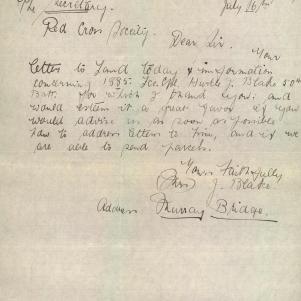 The Secretary. July 16th
Red Cross Society.
Dear Sir.
Your
letter to hand today & information
concerning 1885. Lce. Cpl. Hurtle J. Blake 50th
Batt. for which I thank you. and
would esteem it a great favor if you
would advise us as soon as possible
how to address letters to him, and if we
are able to send parcels.
Yours Faithfully
(Mrs) J. Blake.
Address Murray Bridge.